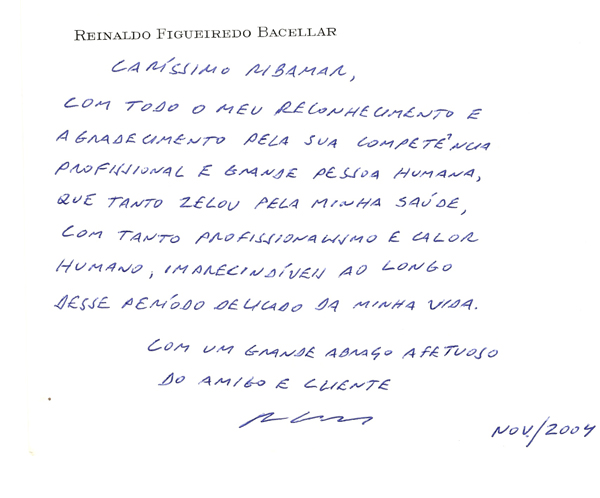 REINALDO FIGUEIREDO BACELLAR
CARÍSSIMO RIBAMAR,
COM TODO O MEU RECONHECIMENTO E
AGRADECIMENTO PELA SUA COMPETÊNCIA
PROFISSIONAL E GRANDE PESSOA HUMANA,
QUE TANTO ZELOU PELA MINHA SAÚDE,
COM TANTO PROFISSIONALISMO E CALOR
HUMANO, IMPRECINDÍVEIS AO LONGO
DESSE PERÍODO DELICADO DA MINHA VIDA.
COM UM GRANDE ABRAÇO AFETUOSO
DO AMIGO E CLIENTE
NOV./2004